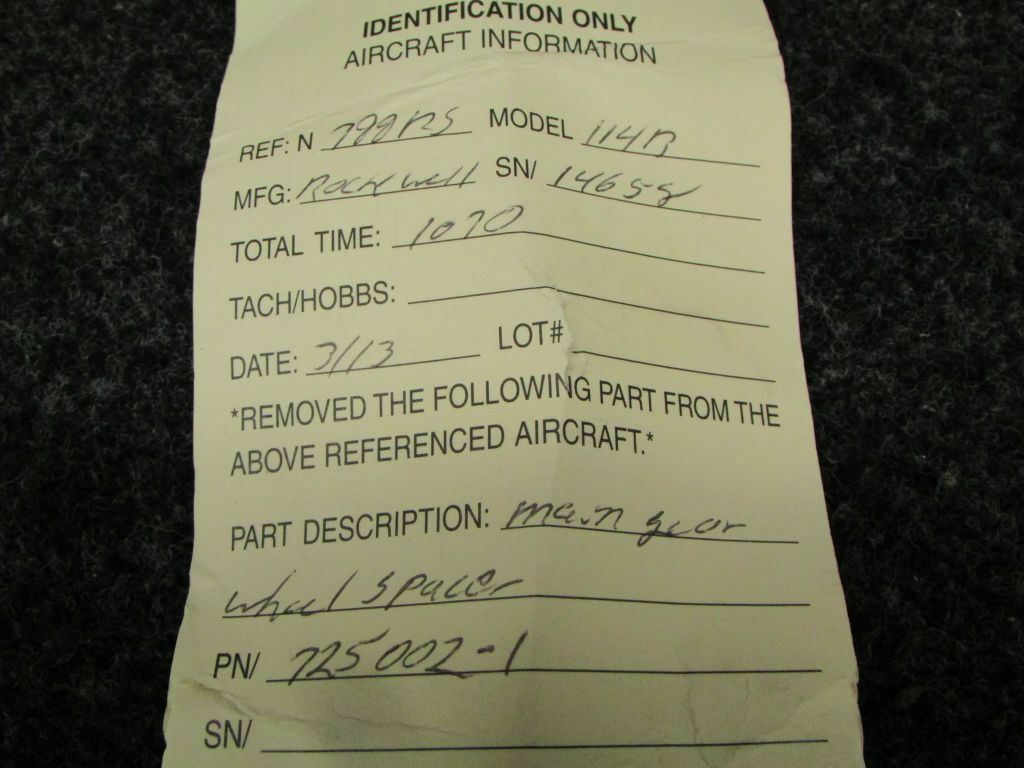 IDENTIFICATION ONLY
AIRCRAFT INFORMATION
REF: N 799RS MODEL 114B
MFG: Rockwell SN/ 14658
TOTAL TIME: 1070
TACH/HOBBS:
DATE: 3/13 LOT#
*REMOVED THE FOLLOWING PART FROM THE
ABOVE REFERENCED AIRCRAFT.*
PART DESCRIPTION: main gear
wheel spacer
PN/ 725002-1
SN/